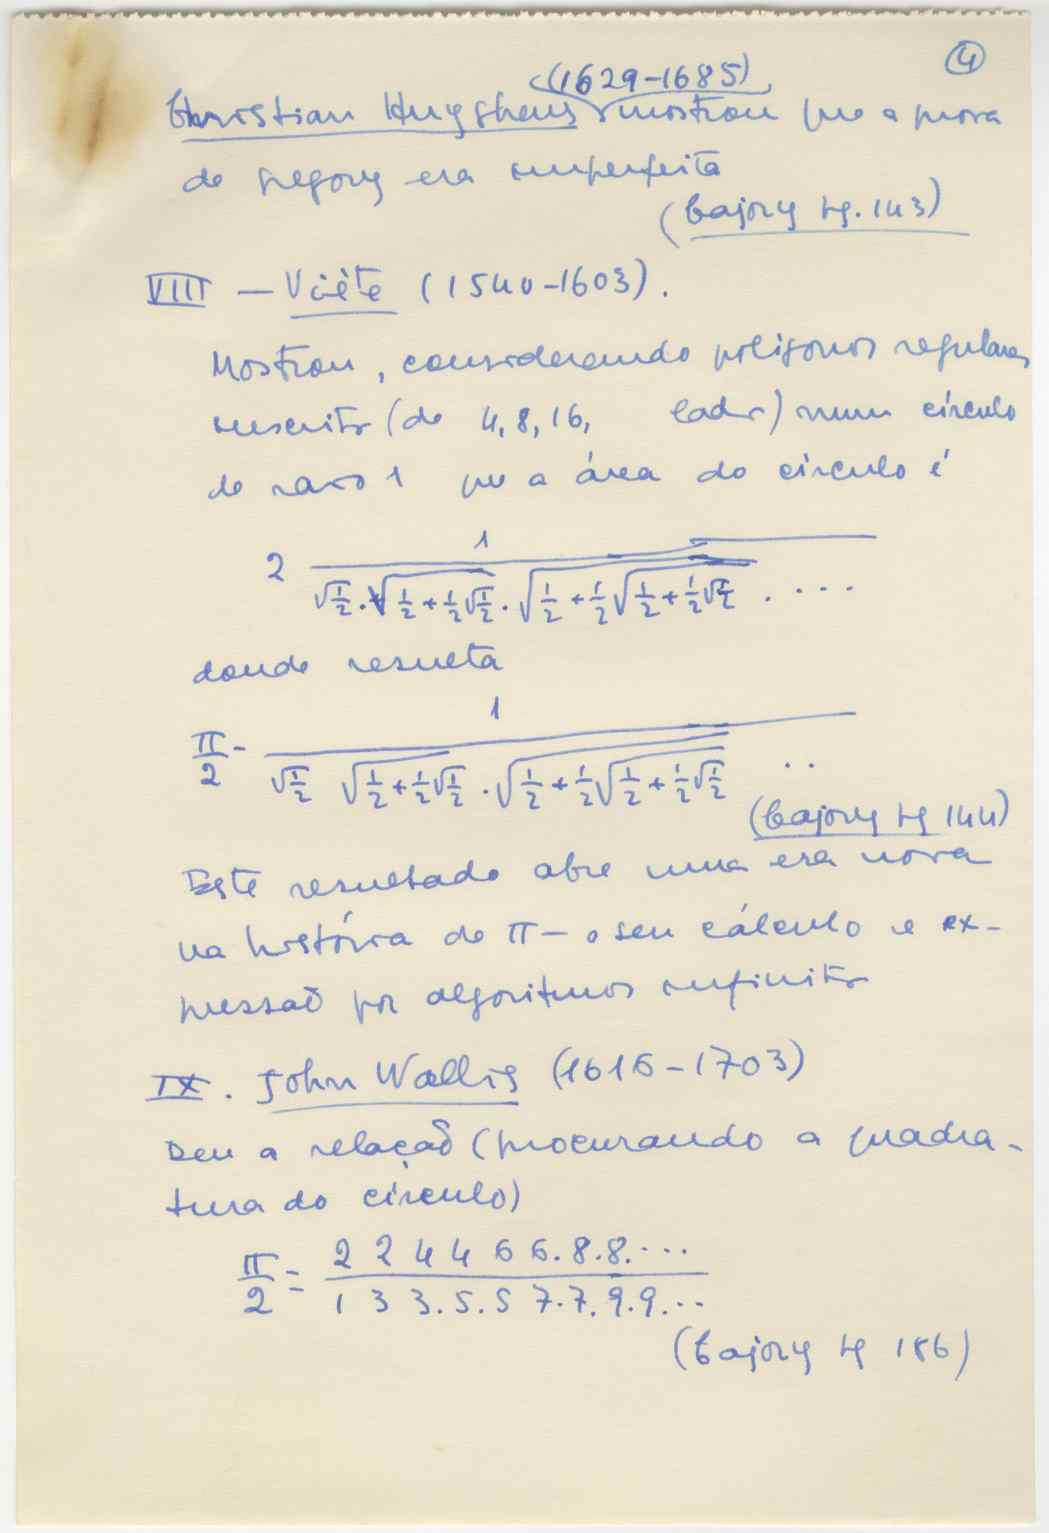 4
(1629-1685)
Christian Huyghens mostrou que a prova
de Gregory era imperfeita
(Cajory pg. 143)
VIII — Viète (1540-1603).
Mostrou, considerando poligonos regulares
inscritos (de 4, 8, 16, lados) num círculo
de raio 1 que a área do círculo é
2 1 / √1/2 . √(1/2 + 1/2 √1/2) . √(1/2 + 1/2 √(1/2 + 1/2 √1/2)) . . . . .
donde resulta
π/2 - 1 / √1/2 √(1/2 + 1/2 √1/2) . √(1/2 + 1/2 √(1/2 + 1/2 √1/2)) . .
(Cajory pg 144)
Este resultado abre uma era nova
na história de π — o seu cálculo e ex-
pressão por algoritmos infinitos
IX. John Wallis (1616-1703)
Deu a relação (procurando a quadra-
tura do círculo)
π/2 = 2 2 4 4 6 6. 8. 8. ... / 1 3 3. 5. 5 7. 7. 9. 9. ...
(Cajory pg 186)